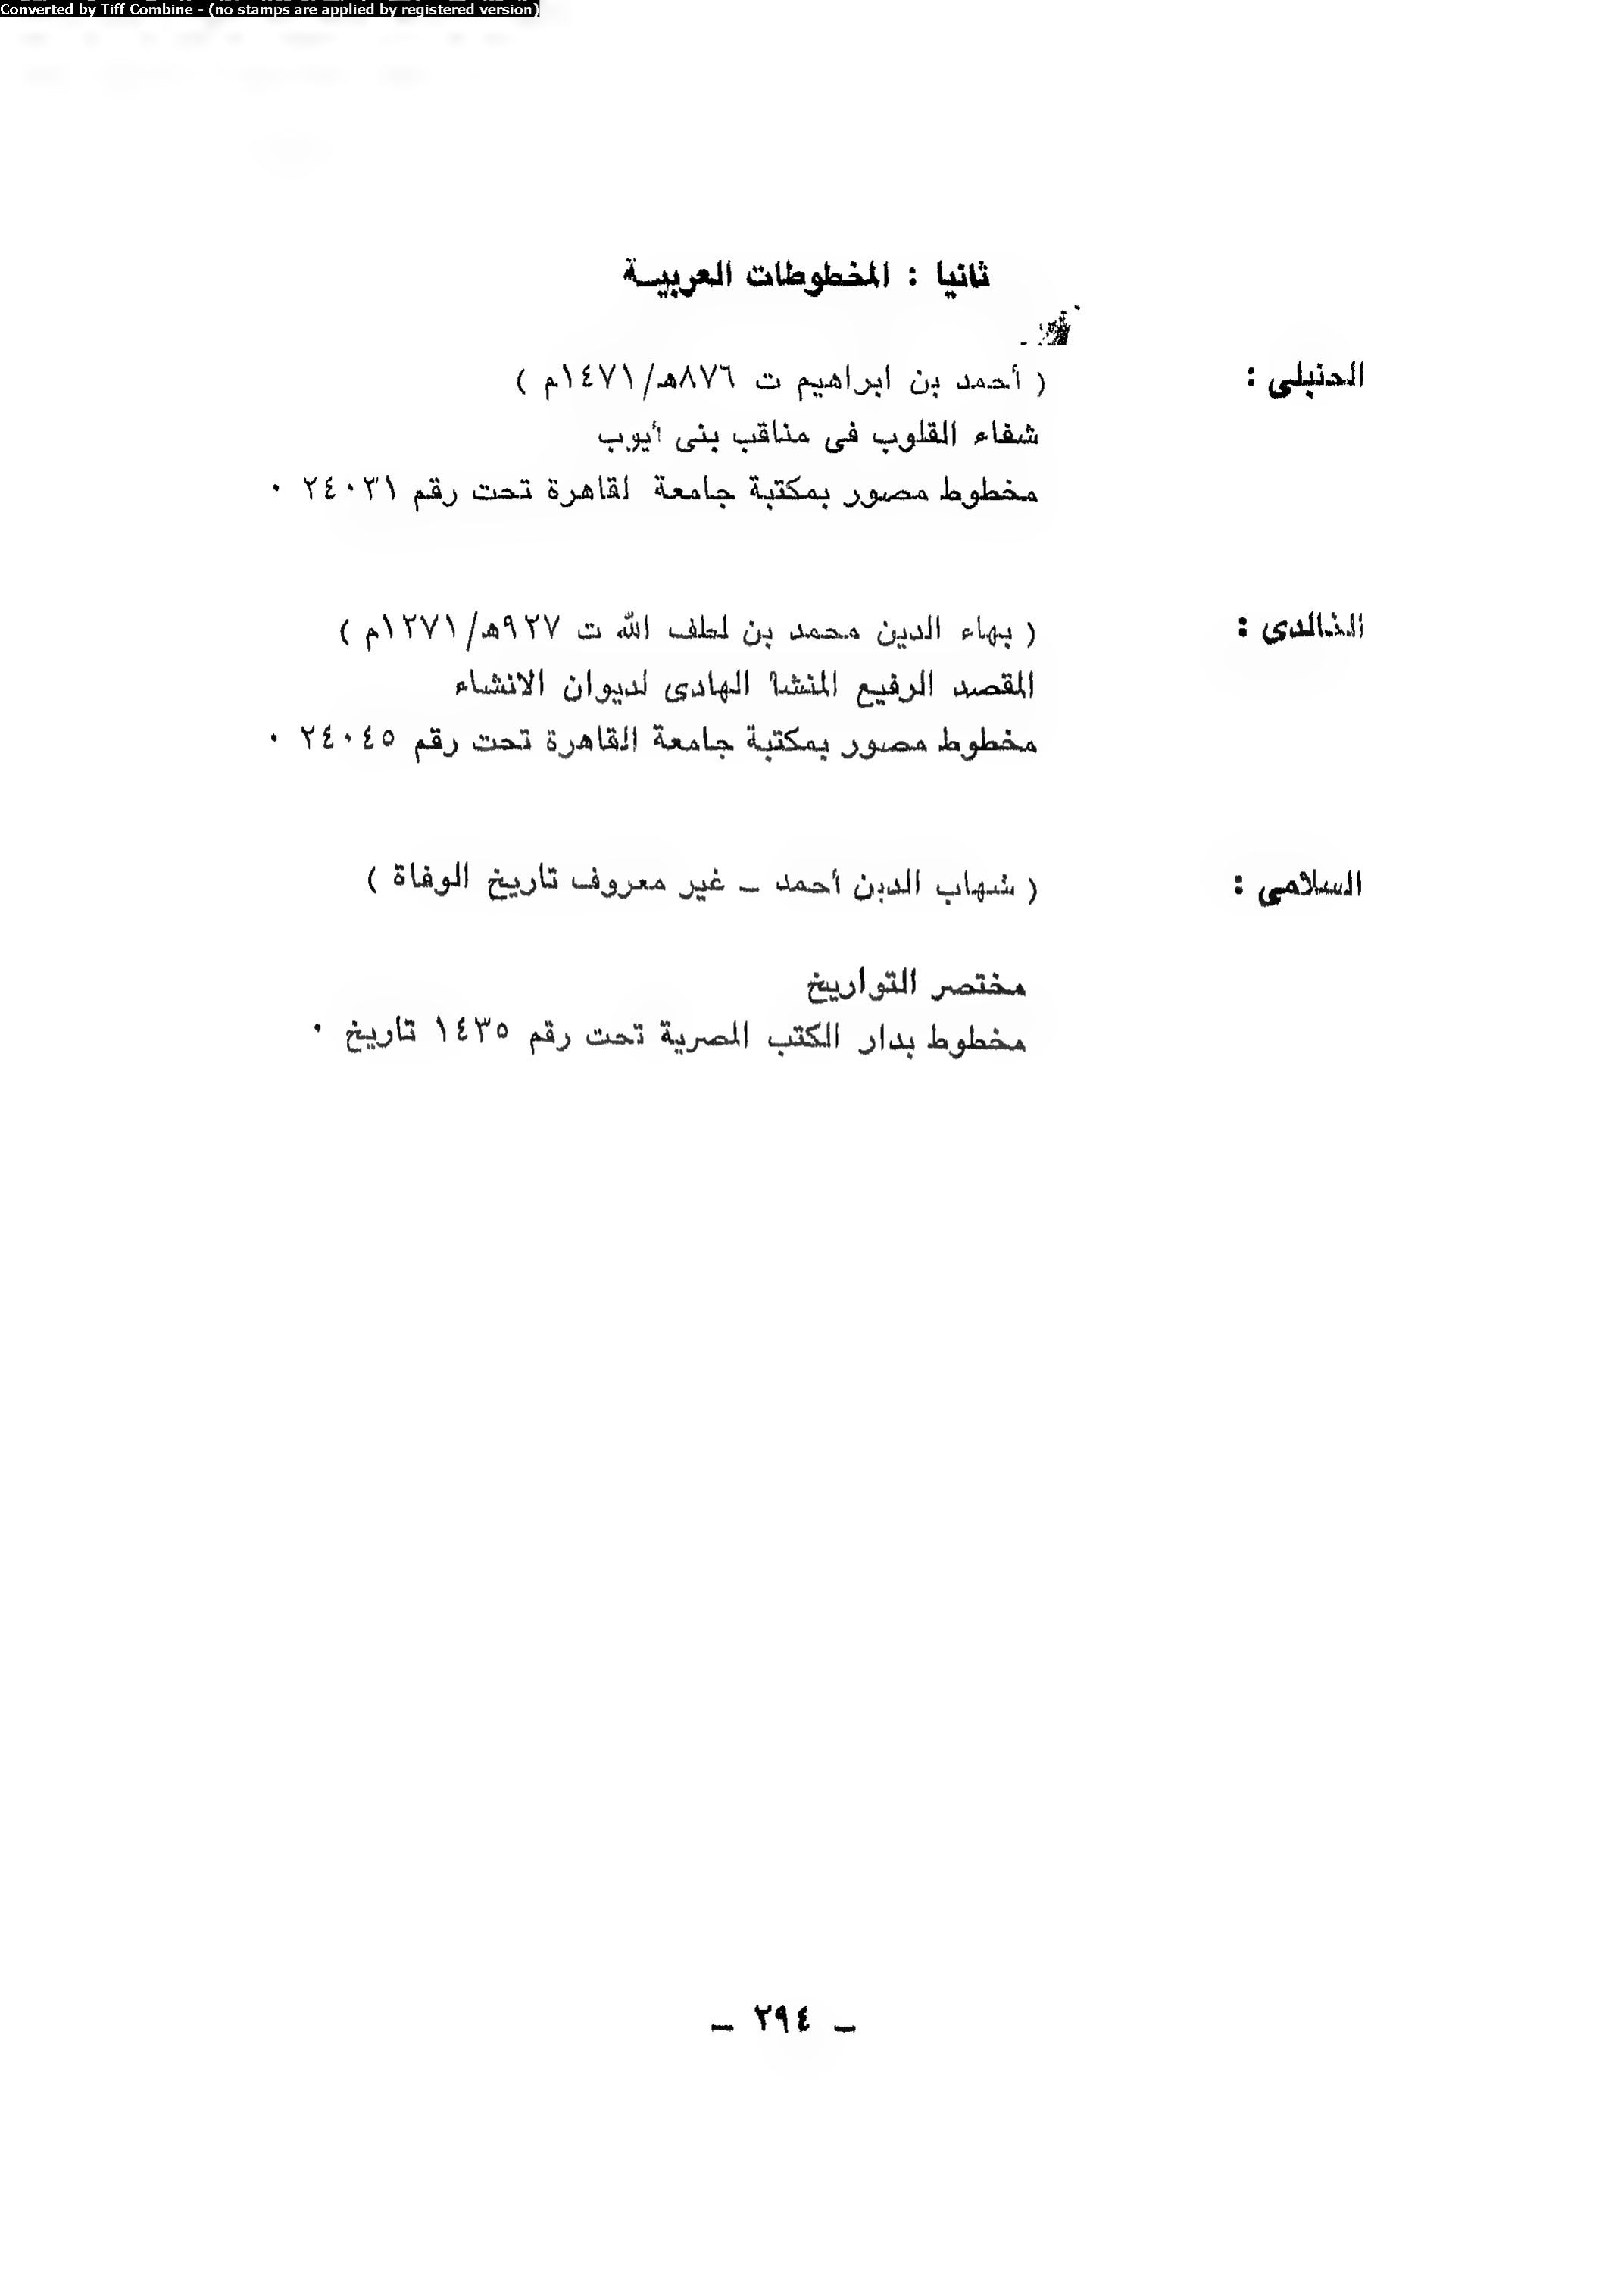 Converted by Tiff Combine - (no stamps are applied by registered version)
ثانيا : المخطوطات العربيـة
الحنبلى : ( أحمد بن ابراهيم ت ٨٧٦هـ/١٤٧١م )
شفاء القلوب فى مناقب بنى أيوب
مخطوط مصور بمكتبة جامعة لقاهرة تحت رقم ٢٤٠٣١ ٠
الخالدى : ( بهاء الدين محمد بن لطف الله ت ٩٣٧هـ/١٢٧١م )
المقصد الرفيع المنشا الهادى لديوان الانشاء
مخطوط مصور بمكتبة جامعة القاهرة تحت رقم ٢٤٠٤٥ ٠
السلامى : ( شهاب الدين أحمد ـ غير معروف تاريخ الوفاة )
مختصر التواريخ
مخطوط بدار الكتب المصرية تحت رقم ١٤٣٥ تاريخ ٠
ـ ٢٩٤ ـ